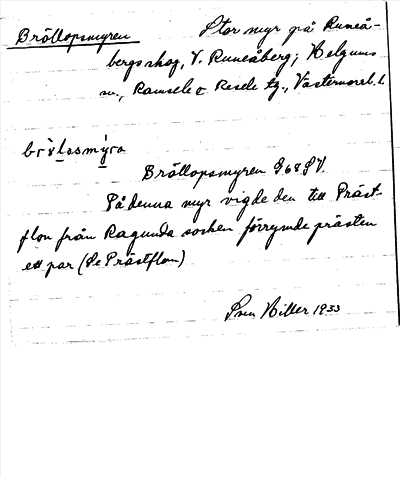 Bröllopsmyren
Stor myr på Runeå-
bergs skog, V. Runeåberg; Helgums
sn., Ramsele o Resele tg., Västernorrl. l.
Bröllopsmyren
På denna myr vigde den till Präst-
flon från Ragunda socken förrymde prästen
ett par (Se Prästflon)
Sven Hiller 1933